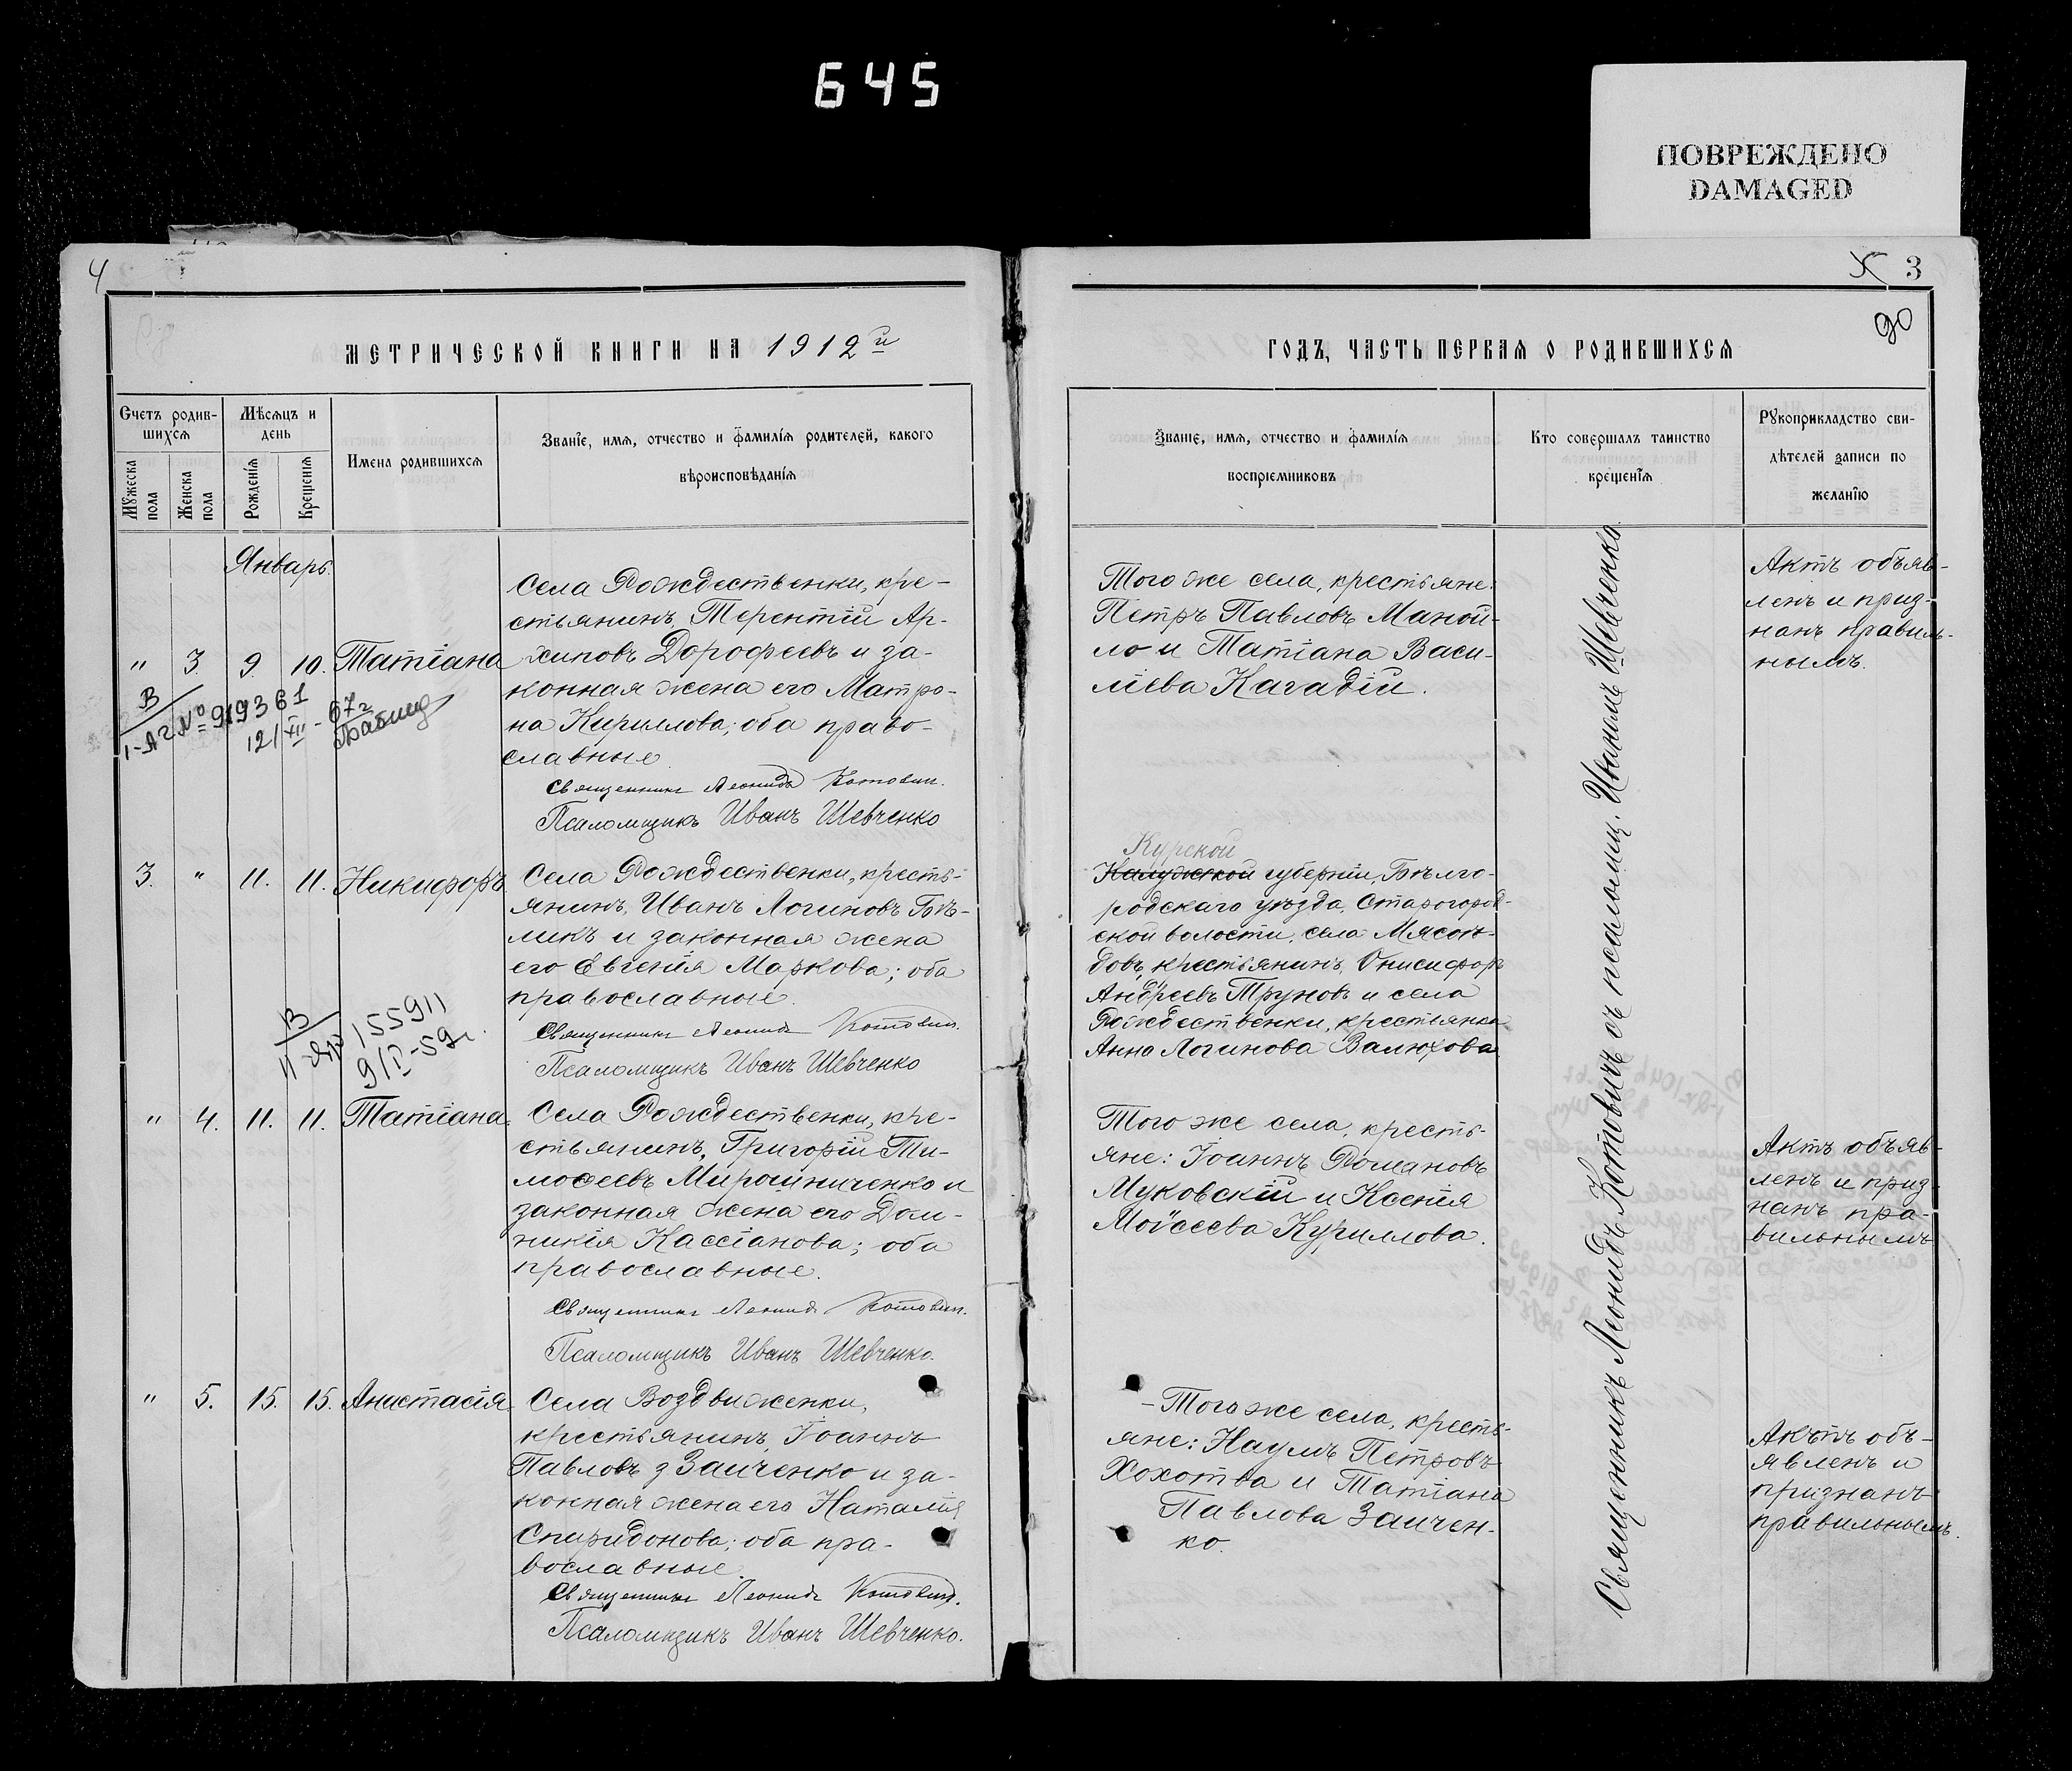 645
ПОВРЕЖДЕНО
DAMAGED
4
3
90
МЕТРИЧЕСКОЙ КНИГИ НА 1912й
ГОДЪ, ЧАСТЬ ПЕРВАЯ О РОДИВШИХСЯ
Счетъ родив-
шихся
Мужеска
пола
Женска
пола
Мѣсяцъ и
день
Рожденія
Крещенія
Имена родившихся
Званіе, имя, отчество и фамилія родителей, какого
вѣроисповѣданія
Званіе, имя, отчество и фамилія
воспріемниковъ
Кто совершалъ таинство
крещенія
Рукоприкладство сви-
дѣтелей записи по
желанію
Январь.
" 3. 9. 10. Татіана
Села Рождественки, кре-
стьянинъ, Терентій Ар-
хиповъ Дорофеевъ и за-
конная жена его Матро-
на Кириллова; оба право-
славные.
Священникъ Леонидъ Котович.
Псаломщикъ Иванъ Шевченко
Того же села, крестьяне:
Петръ Павловъ Маной-
ло и Татіана Васи-
ліева Кагадій.
Актъ объяв-
ленъ и приз-
нанъ правиль-
нымъ.
В
1-АГ № 919361
12/XII - 67г
3. " 11. 11. Никифоръ
Села Рождественки, кресть-
янинъ, Иванъ Логиновъ Бѣ-
ликъ и законная жена
его Евгенія Маркова; оба
православные.
Священникъ Леонидъ Котович.
Псаломщикъ Иванъ Шевченко
Курской
Калужской губерніи, Бѣлго-
родскаго уѣзда, Старогород-
ской волости, села Мясоѣ-
довъ, крестьянинъ, Онисифоръ
Андреевъ Труновъ и села
Рождественки, крестьянка
Анна Логинова Валюхова
В
II 155911
9/I-59г.
" 4. 11. 11. Татіана.
Села Рождественки, кре-
стьянинъ, Григорій Ти-
моѳеевъ Мирошниченко и
законная жена его Дом-
никія Кассіанова; оба
православные.
Священникъ Леонидъ Котович.
Псаломщикъ Иванъ Шевченко.
Того же села, кресть-
яне: Іоаннъ Романовъ
Муковскій и Ксенія
Моисеева Куриллова.
Актъ объяв-
ленъ и приз-
нанъ пра-
вильнымъ
" 5. 15. 15. Анастасія.
Села Воздвиженки,
крестьянинъ, Іоаннъ
Павловъ Заиченко и за-
конная жена его Наталія
Спиридонова; оба пра-
вославные.
Священникъ Леонидъ Котович.
Псаломщикъ Иванъ Шевченко.
- Того же села, кресть-
яне: Наумъ Петровъ
Хохотва и Татіана
Павлова Заичен-
ко.
Актъ объ-
явленъ и
признанъ
правильнымъ.
Священникъ Леонидъ Котовичъ съ псаломщ. Иваномъ Шевченко.